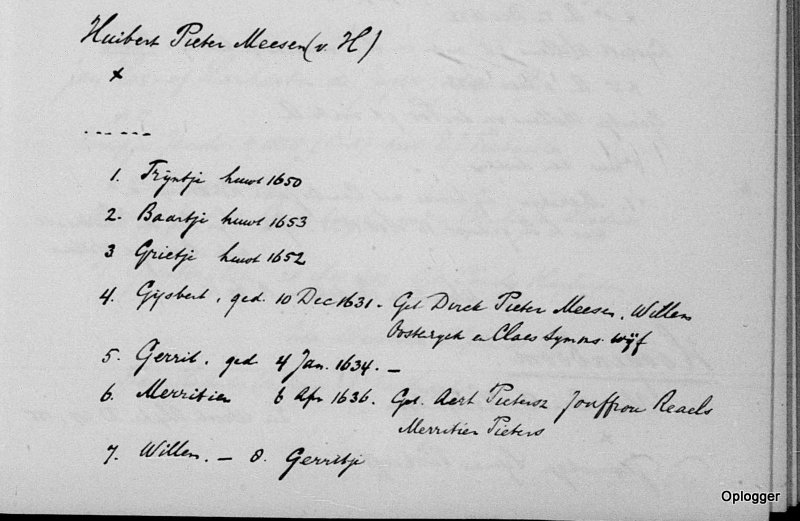 Huibert Pieter Meesen (v. H)
x
------
1. Trijntje huwt 1650
2. Baartje huwt 1653
3 Grietje huwt 1652
4. Gijsbert, ged. 10 Dec 1631. Get Dirck Pieter Meesen, Willem
Oosteryck en Claes Symns. wijf
5. Gerrit. ged 4 Jan. 1634. —
6. Merritien 6 Apr 1636. Get. Aert Pietersz Jouffrou Reaels
Merritien Pieters
7. Willem. — 8. Gerritje
Oplogger